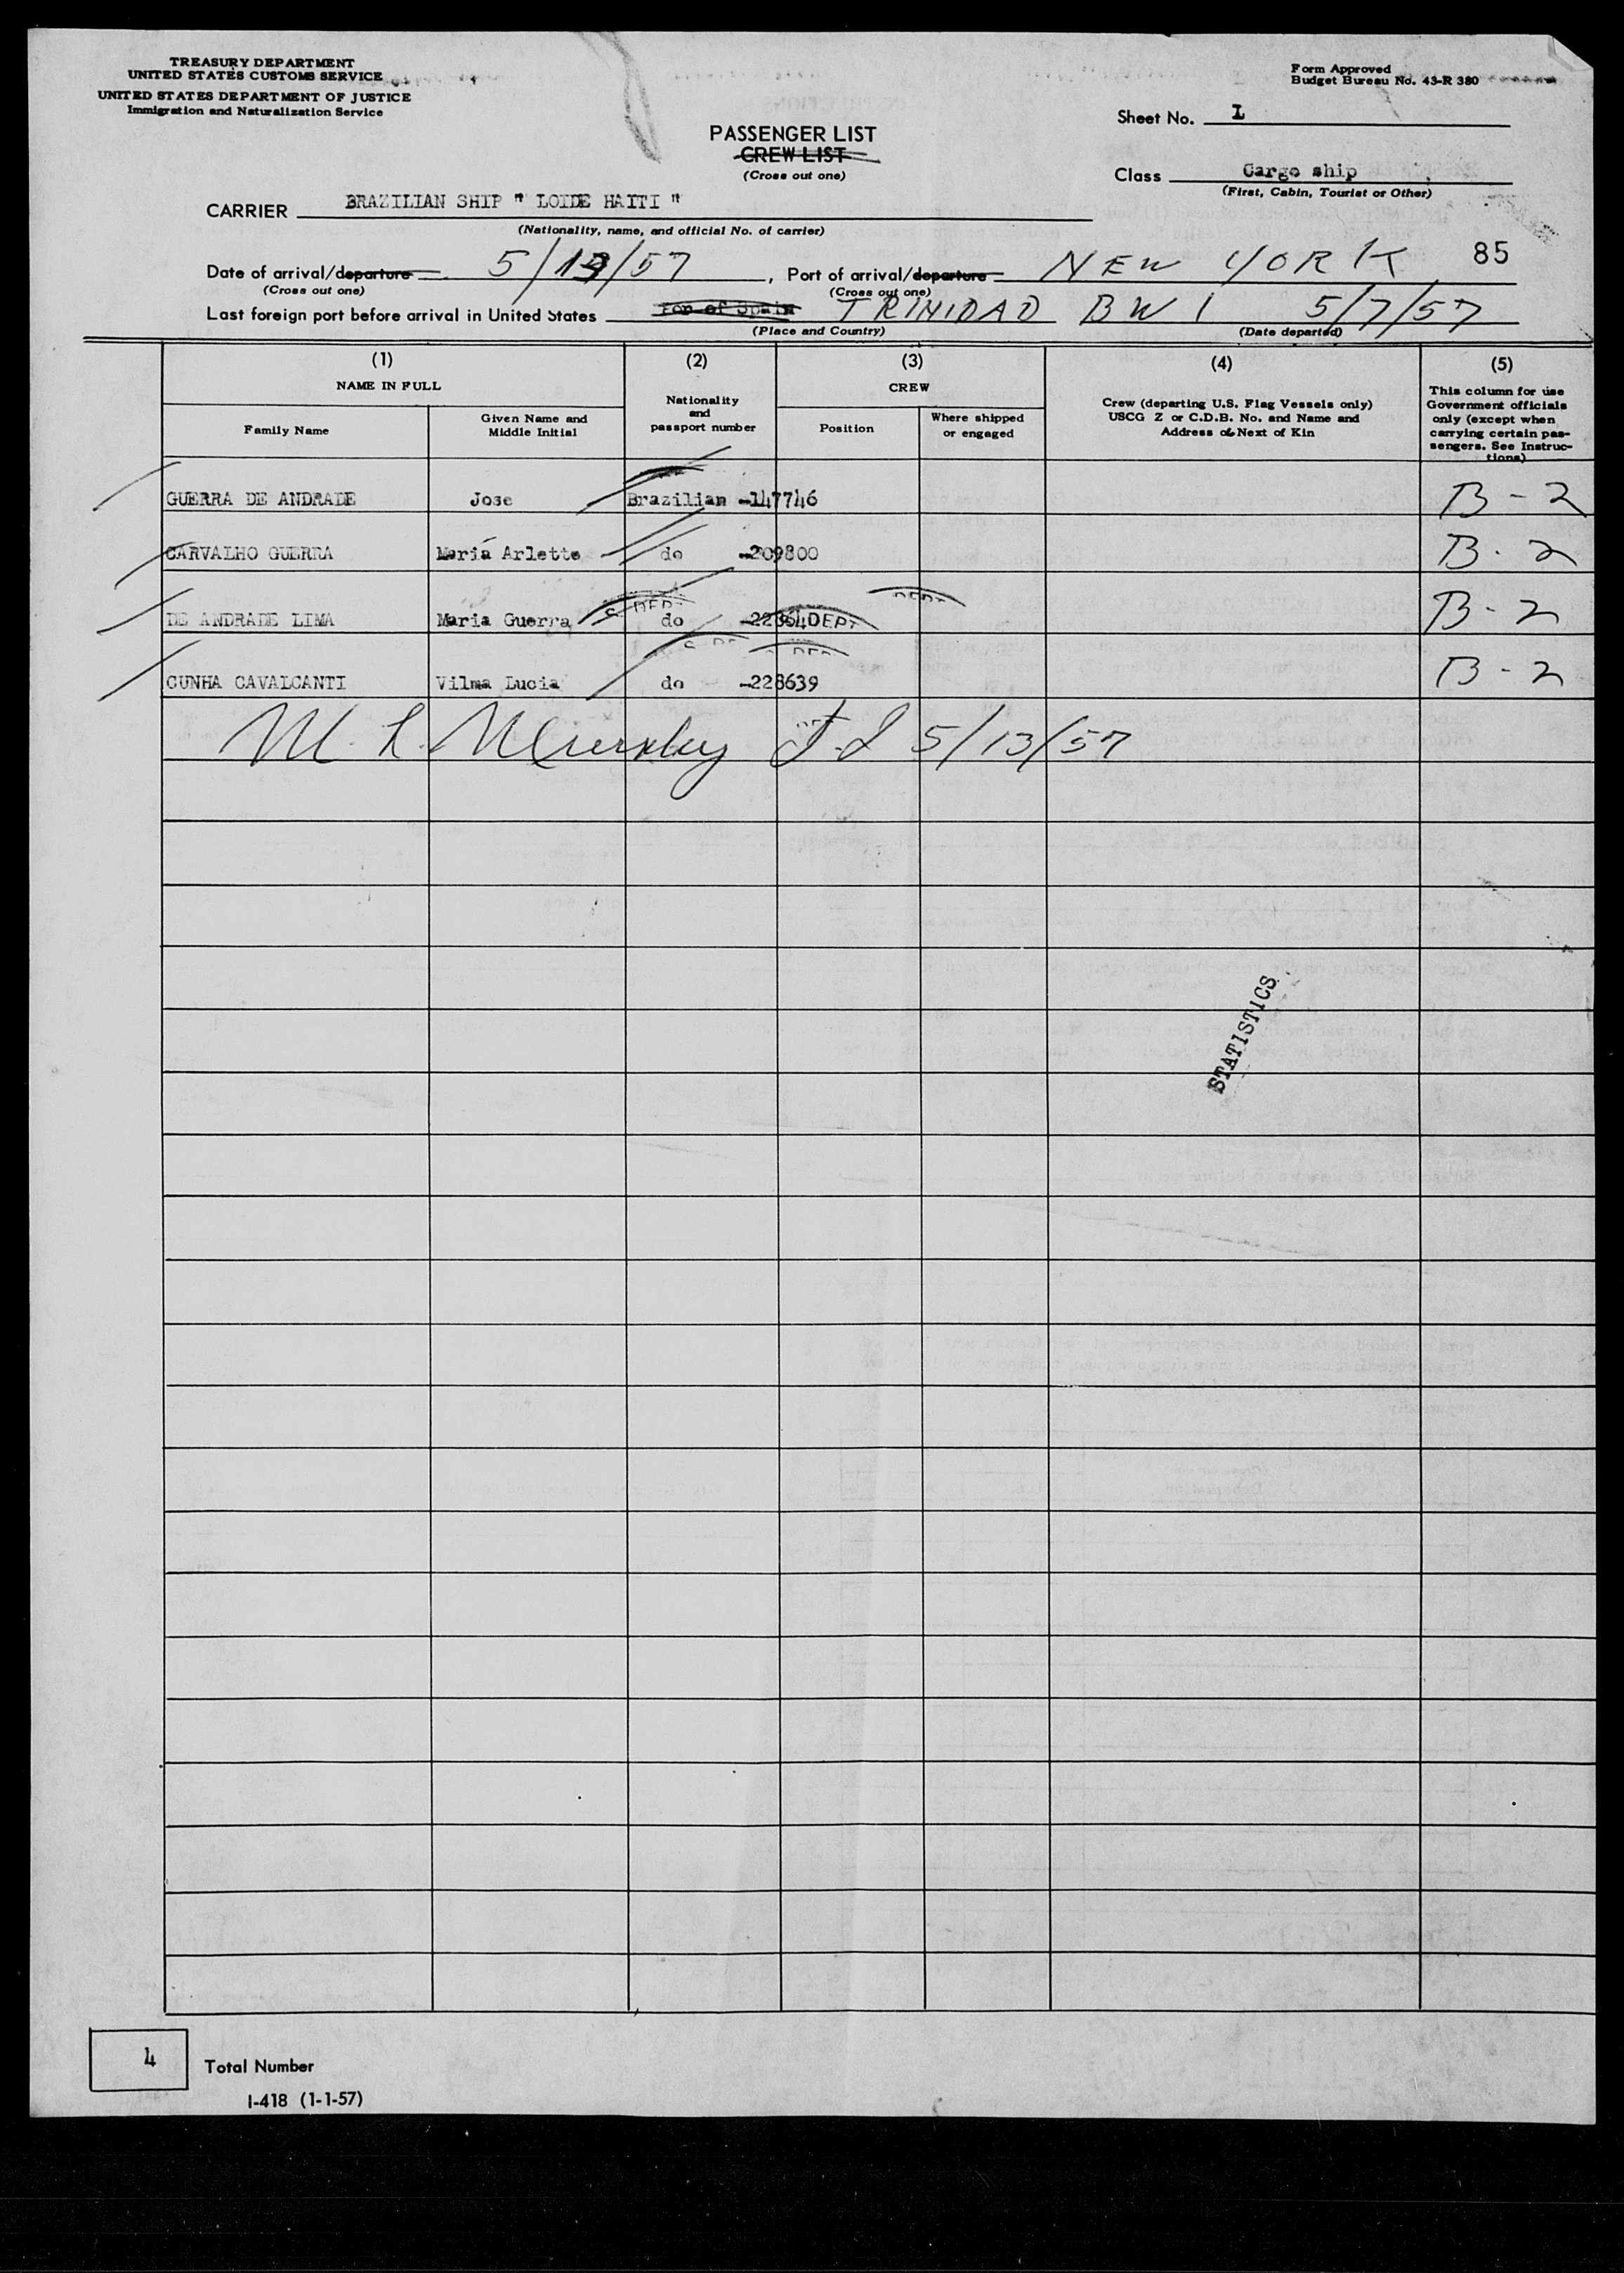 TREASURY DEPARTMENT
UNITED STATES CUSTOMS SERVICE
UNITED STATES DEPARTMENT OF JUSTICE
Immigration and Naturalization Service
Form Approved
Budget Bureau No. 43-R 380
Sheet No. 1
PASSENGER LIST
CREW LIST
(Cross out one)
Class Cargo ship
(First, Cabin, Tourist or Other)
CARRIER BRAZILIAN SHIP " LOIDE HAITI "
(Nationality, name, and official No. of carrier)
85
Date of arrival/departure 5/13/57, Port of arrival/departure NEW YORK
(Cross out one) (Cross out one)
Last foreign port before arrival in United States Por of Spain TRINIDAD BWI 5/7/57
(Place and Country) (Date departed)
(1) (2) (3) (4) (5)
NAME IN FULL
Family Name
Given Name and
Middle Initial
Nationality
and
passport number
CREW
Position
Where shipped
or engaged
Crew (departing U.S. Flag Vessels only)
USCG Z or C.D.B. No. and Name and
Address of Next of Kin
This column for use
Government officials
only (except when
carrying certain pas-
sengers. See Instruc-
tions)
GUERRA DE ANDRADE Jose Brazilian -147746 B-2
CARVALHO GUERRA Maria Arlette do -209800 B-2
DE ANDRADE LIMA Maria Guerra do B-2
DEPT
CUNHA CAVALCANTI Vilma Lucia do -228639 B-2
M. L. 5/13/57
STATISTICS
4 Total Number
I-418 (1-1-57)